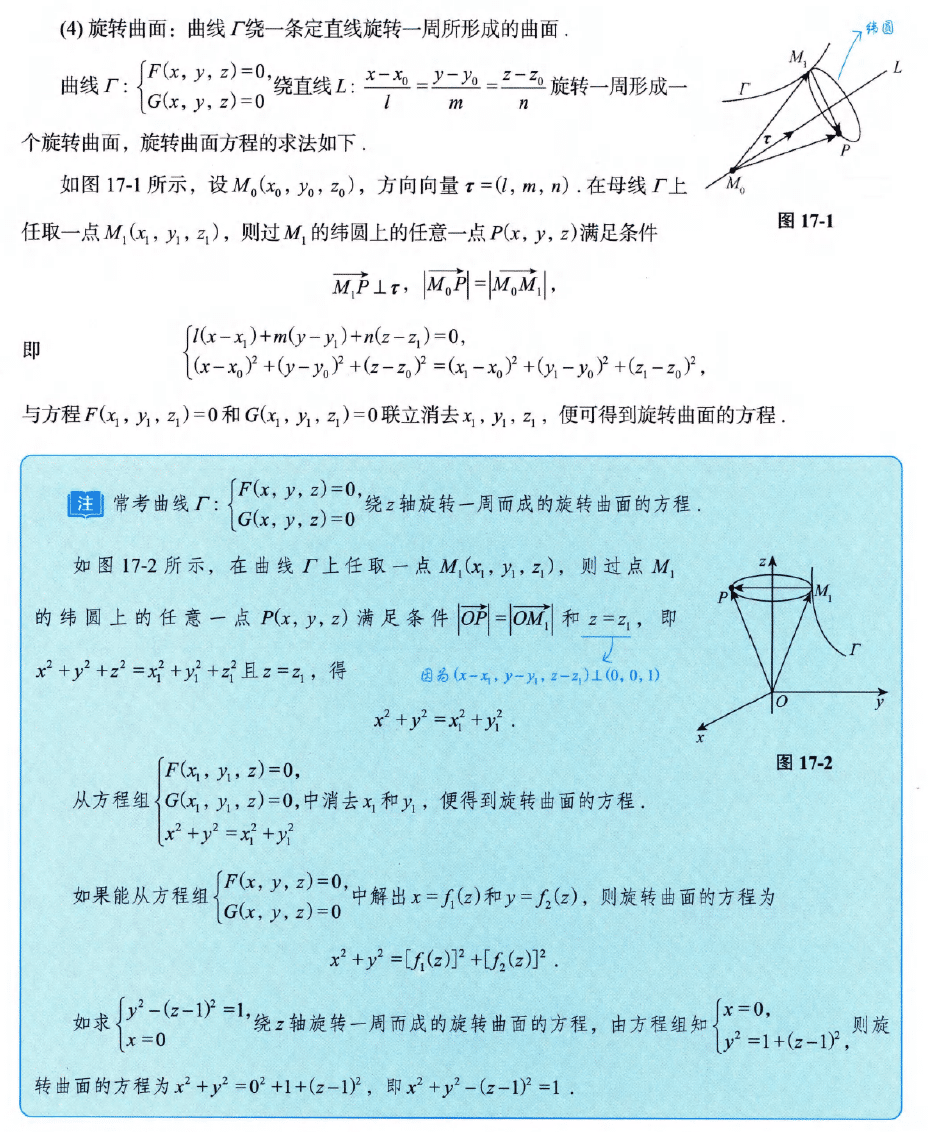 (4) 旋转曲面：曲线Γ绕一条定直线旋转一周所形成的曲面.
纬圆
M₁
L
Γ
τ
P
M₀
图 17-1
曲线Γ：{F(x, y, z)=0, G(x, y, z)=0 绕直线L：(x-x₀)/l=(y-y₀)/m=(z-z₀)/n 旋转一周形成一
个旋转曲面，旋转曲面方程的求法如下.
如图 17-1 所示，设M₀(x₀, y₀, z₀)，方向向量 τ=(l, m, n).在母线Γ上
任取一点M₁(x₁, y₁, z₁)，则过M₁的纬圆上的任意一点P(x, y, z)满足条件
M₁P⃗⊥τ，|M₀P⃗|=|M₀M₁⃗|，
即 {l(x-x₁)+m(y-y₁)+n(z-z₁)=0,
(x-x₀)²+(y-y₀)²+(z-z₀)²=(x₁-x₀)²+(y₁-y₀)²+(z₁-z₀)²,
与方程F(x₁, y₁, z₁)=0和G(x₁, y₁, z₁)=0联立消去x₁, y₁, z₁，便可得到旋转曲面的方程.
注 常考曲线Γ：{F(x, y, z)=0, G(x, y, z)=0 绕z轴旋转一周而成的旋转曲面的方程.
如图 17-2 所示，在曲线Γ上任取一点M₁(x₁, y₁, z₁)，则过点M₁
的纬圆上的任意一点P(x, y, z)满足条件|OP⃗|=|OM₁⃗|和z=z₁，即
x²+y²+z²=x₁²+y₁²+z₁²且z=z₁，得
因为(x-x₁, y-y₁, z-z₁)⊥(0, 0, 1)
x²+y²=x₁²+y₁².
z
P
M₁
Γ
O
y
x
图 17-2
从方程组{F(x₁, y₁, z)=0, G(x₁, y₁, z)=0, x²+y²=x₁²+y₁² 中消去x₁和y₁，便得到旋转曲面的方程.
如果能从方程组{F(x, y, z)=0, G(x, y, z)=0 中解出x=f₁(z)和y=f₂(z)，则旋转曲面的方程为
x²+y²=[f₁(z)]²+[f₂(z)]².
如求{y²-(z-1)²=1, x=0 绕z轴旋转一周而成的旋转曲面的方程，由方程组知{x=0, y²=1+(z-1)², 则旋
转曲面的方程为x²+y²=0²+1+(z-1)²，即x²+y²-(z-1)²=1.